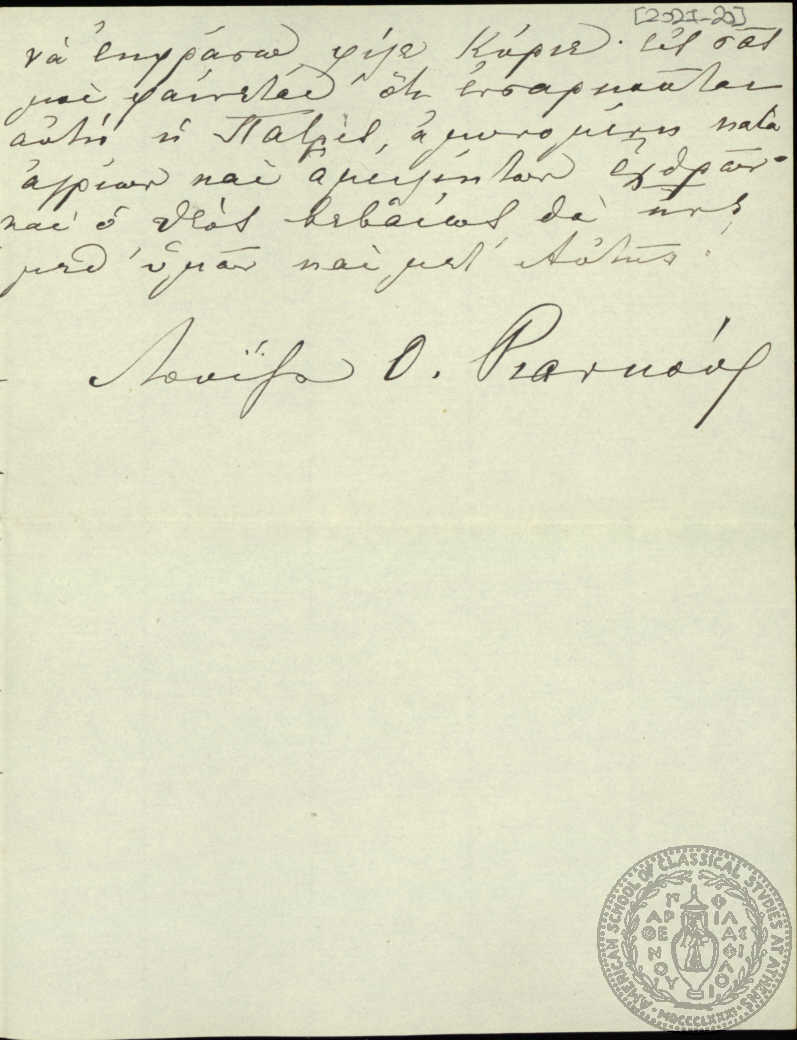 [2021-20]
νὰ ἐκφράσω, φίλε Κύριε· εἰς σᾶς
μοὶ φαίνεται ὅτι ἐνσαρκοῦται
αὐτὴ ἡ Πατρὶς, ἀμυνομένη κατὰ
ἀγρίων καὶ ἀμειλίκτων ἐχθρῶν·
καὶ ὁ Θεὸς βεβαίως θὰ ἦνε
μεθ' ὑμῶν καὶ μετ' Αὐτῆς!
Λουίζα Ο. Ριανκούρ
AMERICAN SCHOOL OF CLASSICAL STUDIES AT ATHENS
ΠΑΡΘΕΝΟΥ ΦΙΛΑΣ ΦΙΛΟΙ
MDCCCLXXXI